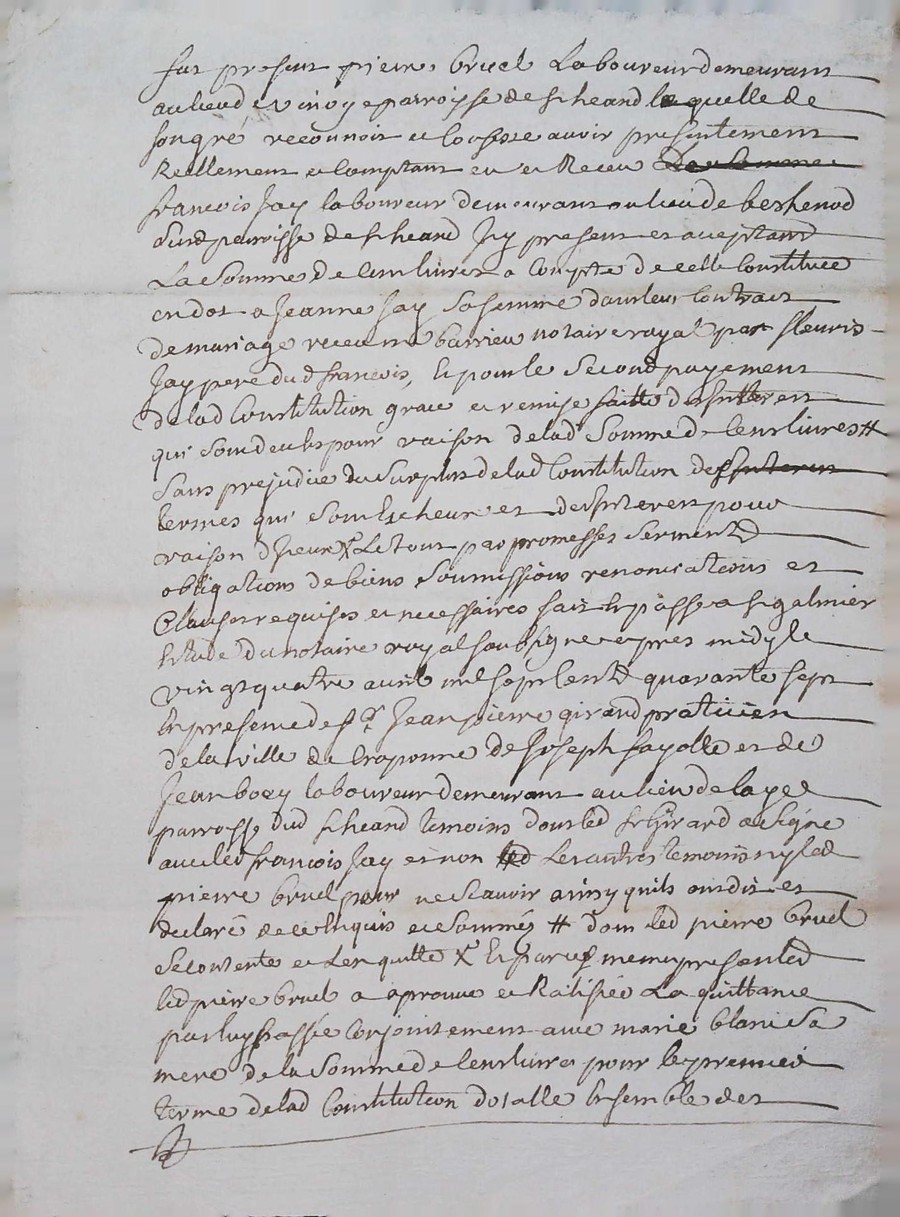 fut present pierre bruel Laboureur demeurant
au lieu de vinoy parroysse de st heand lequelle de
son gré reconnoit et Confesse avoir presentement
Reellement et Comptant eu et Receu De
francois Jay laboureur demeurant au lieu de
Susd parroisse de st heand Icy present et acceptant
La Somme de Cent livres a Compte de celle Constituée
en dot a Jeanne Jay Sa femme dans leur Contract
de mariage receu me barrieu notaire royal par fleuris
Jay pere dud francois, et pour le Second payement
de lad Constitution grace et remise faitte des Interets
qui sont deubs pour raison de lad Somme de Cent livres #
Sans prejudice du Surplus de lad Constitution des Interets
termes qui sont Escheux et des Interets pour
raison d'Iceux X Le tout par promesses serment
obligations de biens Soumissions renonciations et
Clauses requises et necessaires fait et passé a st galmier
Etude du notaire royal soubsigné apres midy le
vingt quatre avril mil sept Cent quarante sept
En presence de sr Jean pierre girard praticien
de la ville de Craponne de Joseph fayolle et de
Jean laboureur demeurant au lieu de
parroisse dud st heand temoins dont led sr Girard a signé
avec led francois Jay et non Les autres temoins ny led
pierre bruel pour ne Scavoir ainsy quils ont dit et
declaré de ce Enquis et Sommés # dont led pierre bruel
se contente et L'en quitte X Et par ces memes presentes
led pierre bruel a aprouvé et Ratifiée La quittance
par luy passée Conjointement avec marie blanc Sa
mere de la Somme de Cent livres pour le premier
terme de lad Constitution dotalle Ensemble des